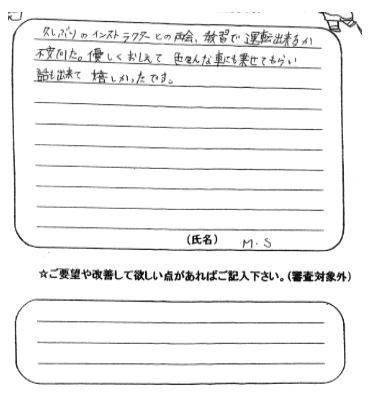 久しぶりのインストラクターとの再会、教習で運転出来るか
不安でした。優しくおしえて 色々んな車にも乗せてもらい
話も出来て 嬉しかったです。
(氏名) M.S
☆ご要望や改善して欲しい点があればご記入下さい。(審査対象外)